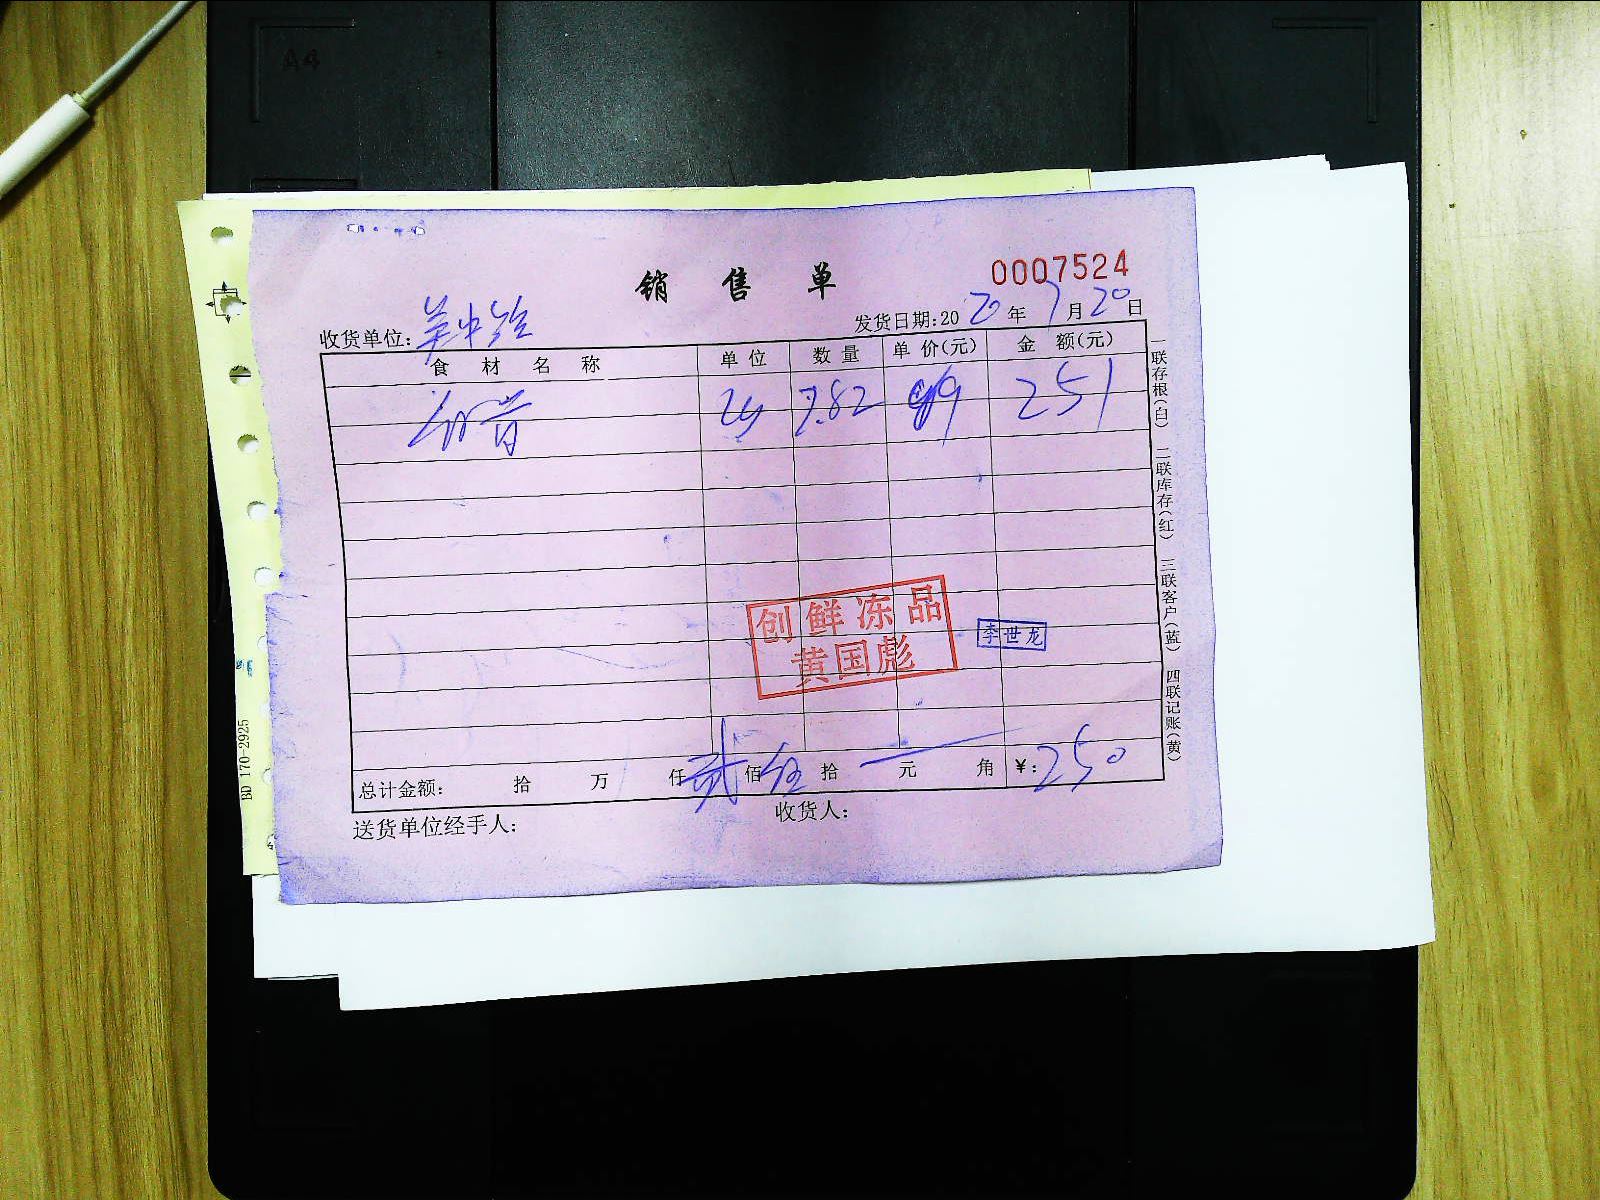 A4
销售单
0007524
收货单位:
发货日期:2020年7月20日
食材名称 单位 数量 单价(元) 金额(元)
7.82 99 251
创鲜冻品
黄国彪
李世龙
总计金额: 拾 万 仟 贰 佰 伍 拾 元 角 ¥:250
送货单位经手人: 收货人:
一联存根(白) 二联库存(红) 三联客户(蓝) 四联记账(黄)
BD 170-2925